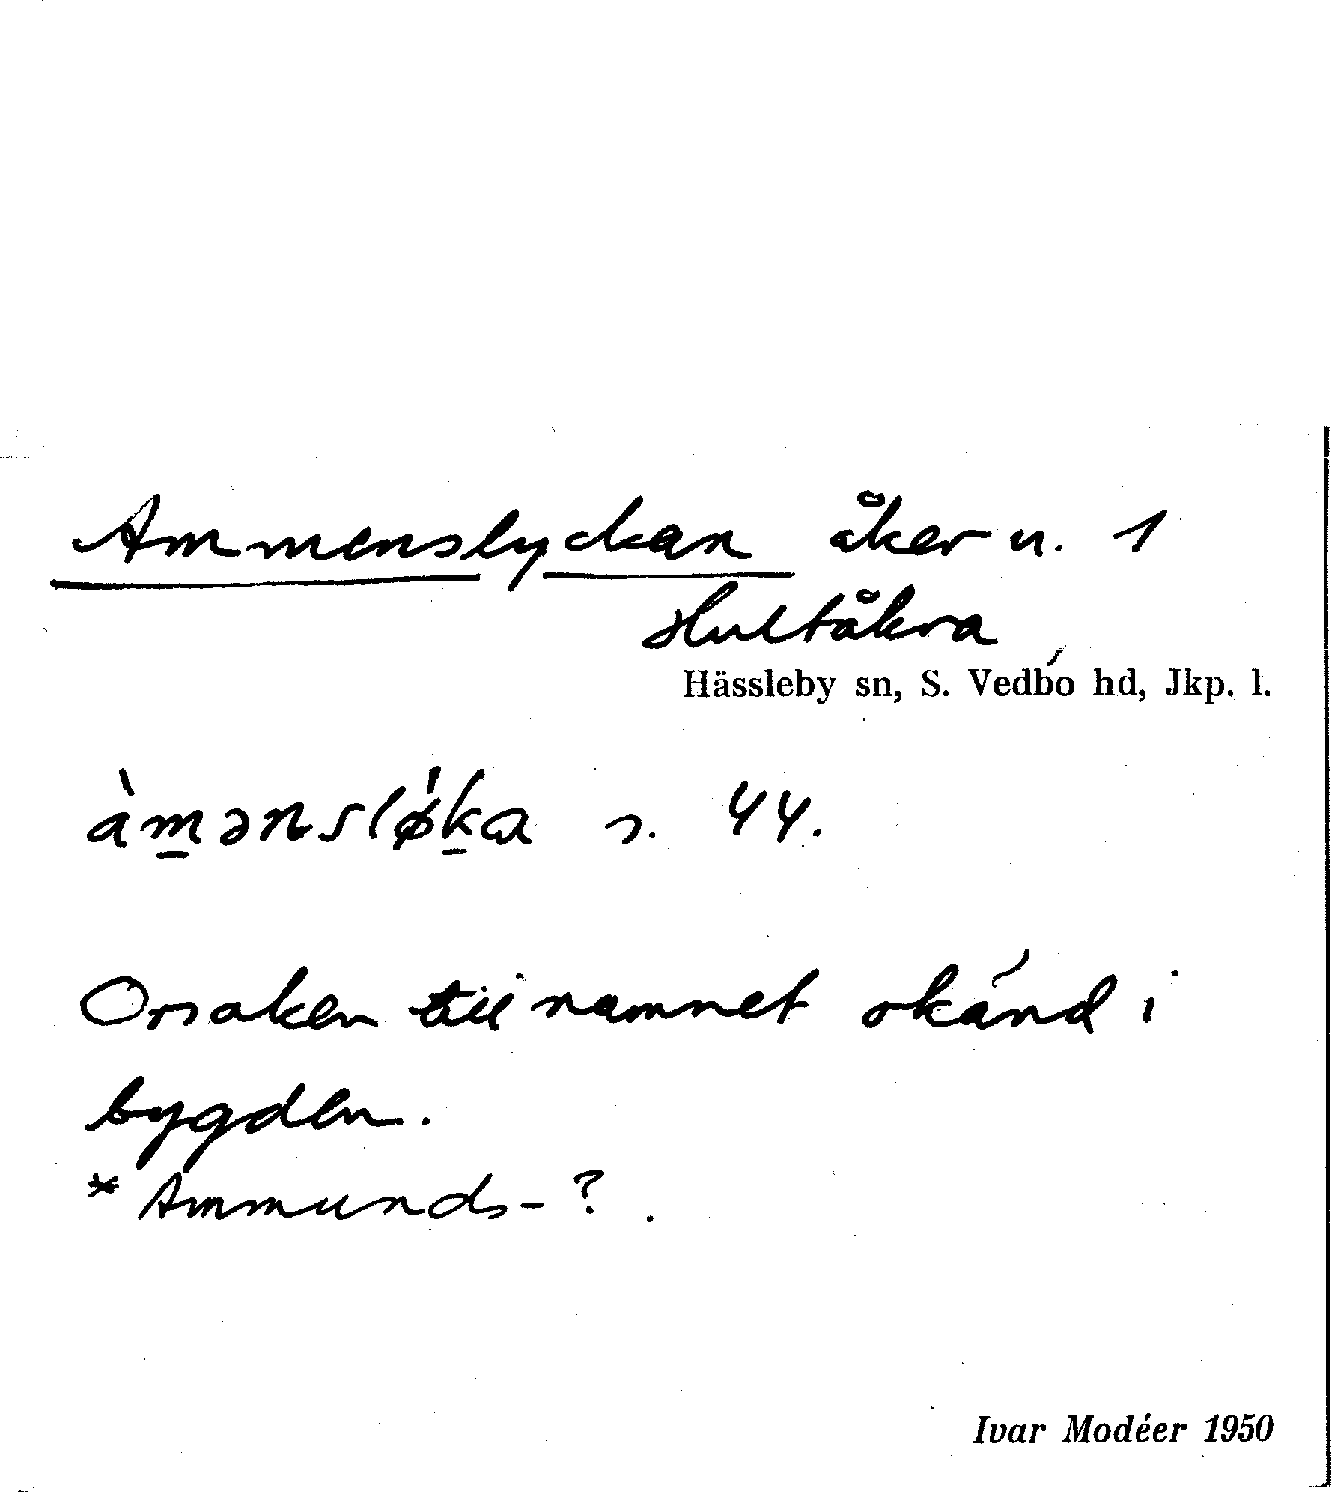 Ammenslyckan åker u. 1
Hultåkra
Hässleby sn, S. Vedbo hd, Jkp. l.
àm̲ənslø̍k̲a s. 44.
Orsaken till namnet okänd i
bygden.
* Ammunds- ?
Ivar Modéer 1950